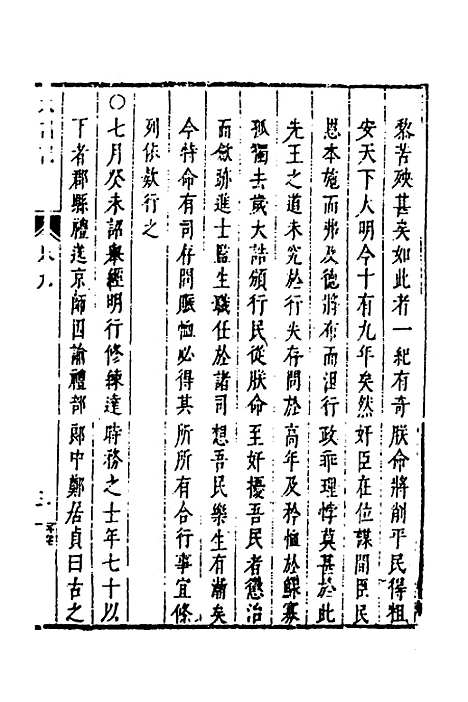 黎苦殃甚矣如此者一紀有奇朕命將削平民得粗
安天下大明今十有九年矣然奸臣在位謀間臣民
恩本施而弗及德將布而沮行政乖理悖莫甚於此
先王之道未究於行失存問於高年及矜恤於鰥寡
孤獨去歲大誥頒行民從朕命至奸擾吾民者懲治
而斂跡進士監生職任於諸司想吾民樂生有漸矣
今特命有司存問賑恤必得其所所有合行事宜條
列依欵行之
○七月癸未詔舉經明行修練達時務之士年七十以
下者郡縣禮送京師因諭禮部郎中鄭居貞曰古之